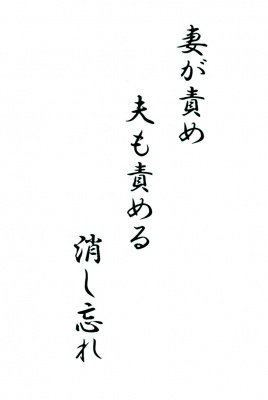 妻が責め
夫も責める
消し忘れ